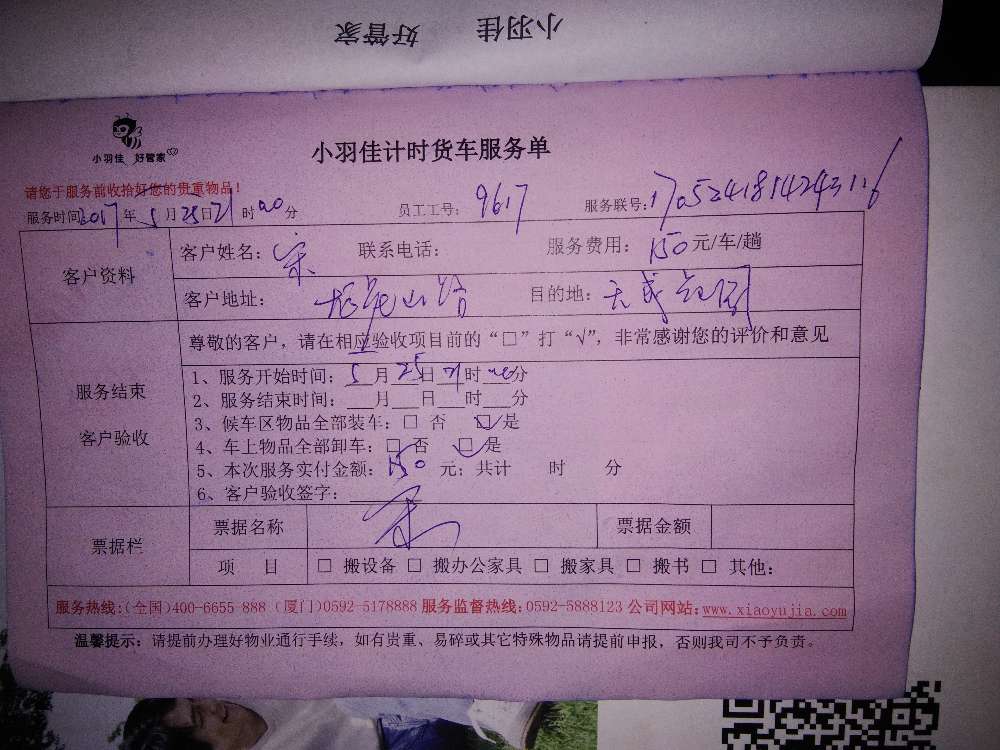 小羽佳 好管家
小羽佳 好管家
小羽佳计时货车服务单
请您于服务前收拾好您的贵重物品！
服务时间2017年5月25日21时00分 员工工号：9617 服务联号：
客户资料 客户姓名：宋 联系电话： 服务费用：150元/车/趟
客户地址： 目的地：
尊敬的客户，请在相应验收项目前的“□”打“√”，非常感谢您的评价和意见
服务结束
客户验收
1、服务开始时间：5月25日21时00分
2、服务结束时间：___月___日___时___分
3、候车区物品全部装车：□ 否 ☑是
4、车上物品全部卸车：□ 否 ☑是
5、本次服务实付金额：150 元；共计 时 分
6、客户验收签字：宋
票据栏 票据名称 票据金额
项 目 □ 搬设备 □ 搬办公家具 □ 搬家具 □ 搬书 □ 其他：
服务热线：（全国）400-6655 888（厦门）0592-5178888 服务监督热线：0592-5888123 公司网站：www.xiaoyujia.com
温馨提示：请提前办理好物业通行手续，如有贵重、易碎或其它特殊物品请提前申报，否则我司不予负责。